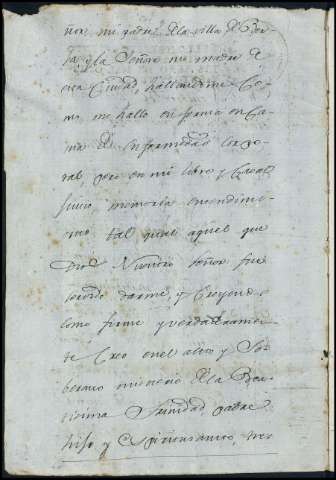 mi padre de la villa de
y la Señora mi madre de
esta Ciudad, hallandome Co
mo me hallo enferma en Ca
ma de enfermedad Corpo
ral, pero en mi libre y Cabal
juicio, memoria entendimi
ento tal qual aquel que
Dios Nuestro Señor fue
servido darme, y Creyendo
como firme y verdaderamen
te Creo en el alto y So
berano misterio de la Bea
tisima Trinidad, padre
hijo y Espiritu santo, tres